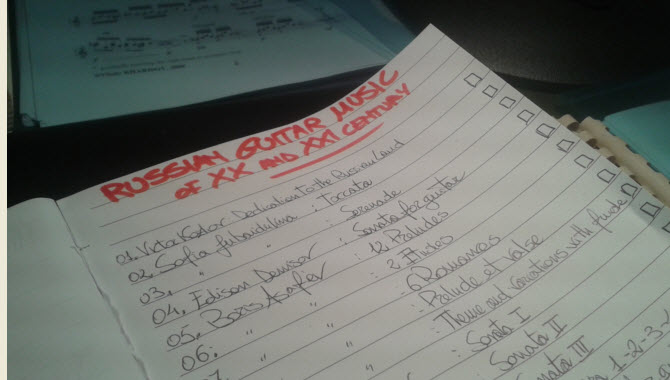 RUSSIAN GUITAR MUSIC
OF XX AND XXI CENTURY
01. Victor Kozlov: Dedication to the Russian Land
02. Sofia Gubaidulina : Toccata
03. " " : Serenade
04. Edison Denisov : Sonata for guitar
05. Boris Asafiev : 12 Preludes
06. " " : 2 Etudes
07. " " : 6 Romances
: Prelude et Valse
: Theme and variations with finale
: Sonata I
: Sonata II
Sonata III
1-2-3